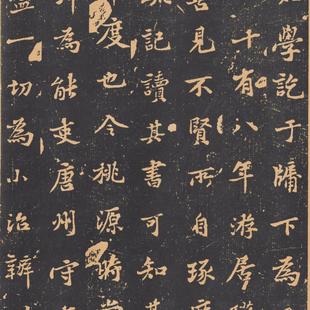 學訖于牖下為
十有八年游居
見不賢所自琢磨
記讀其書可知其
度也今桃源時
為能吏唐州守
一切為小治辦